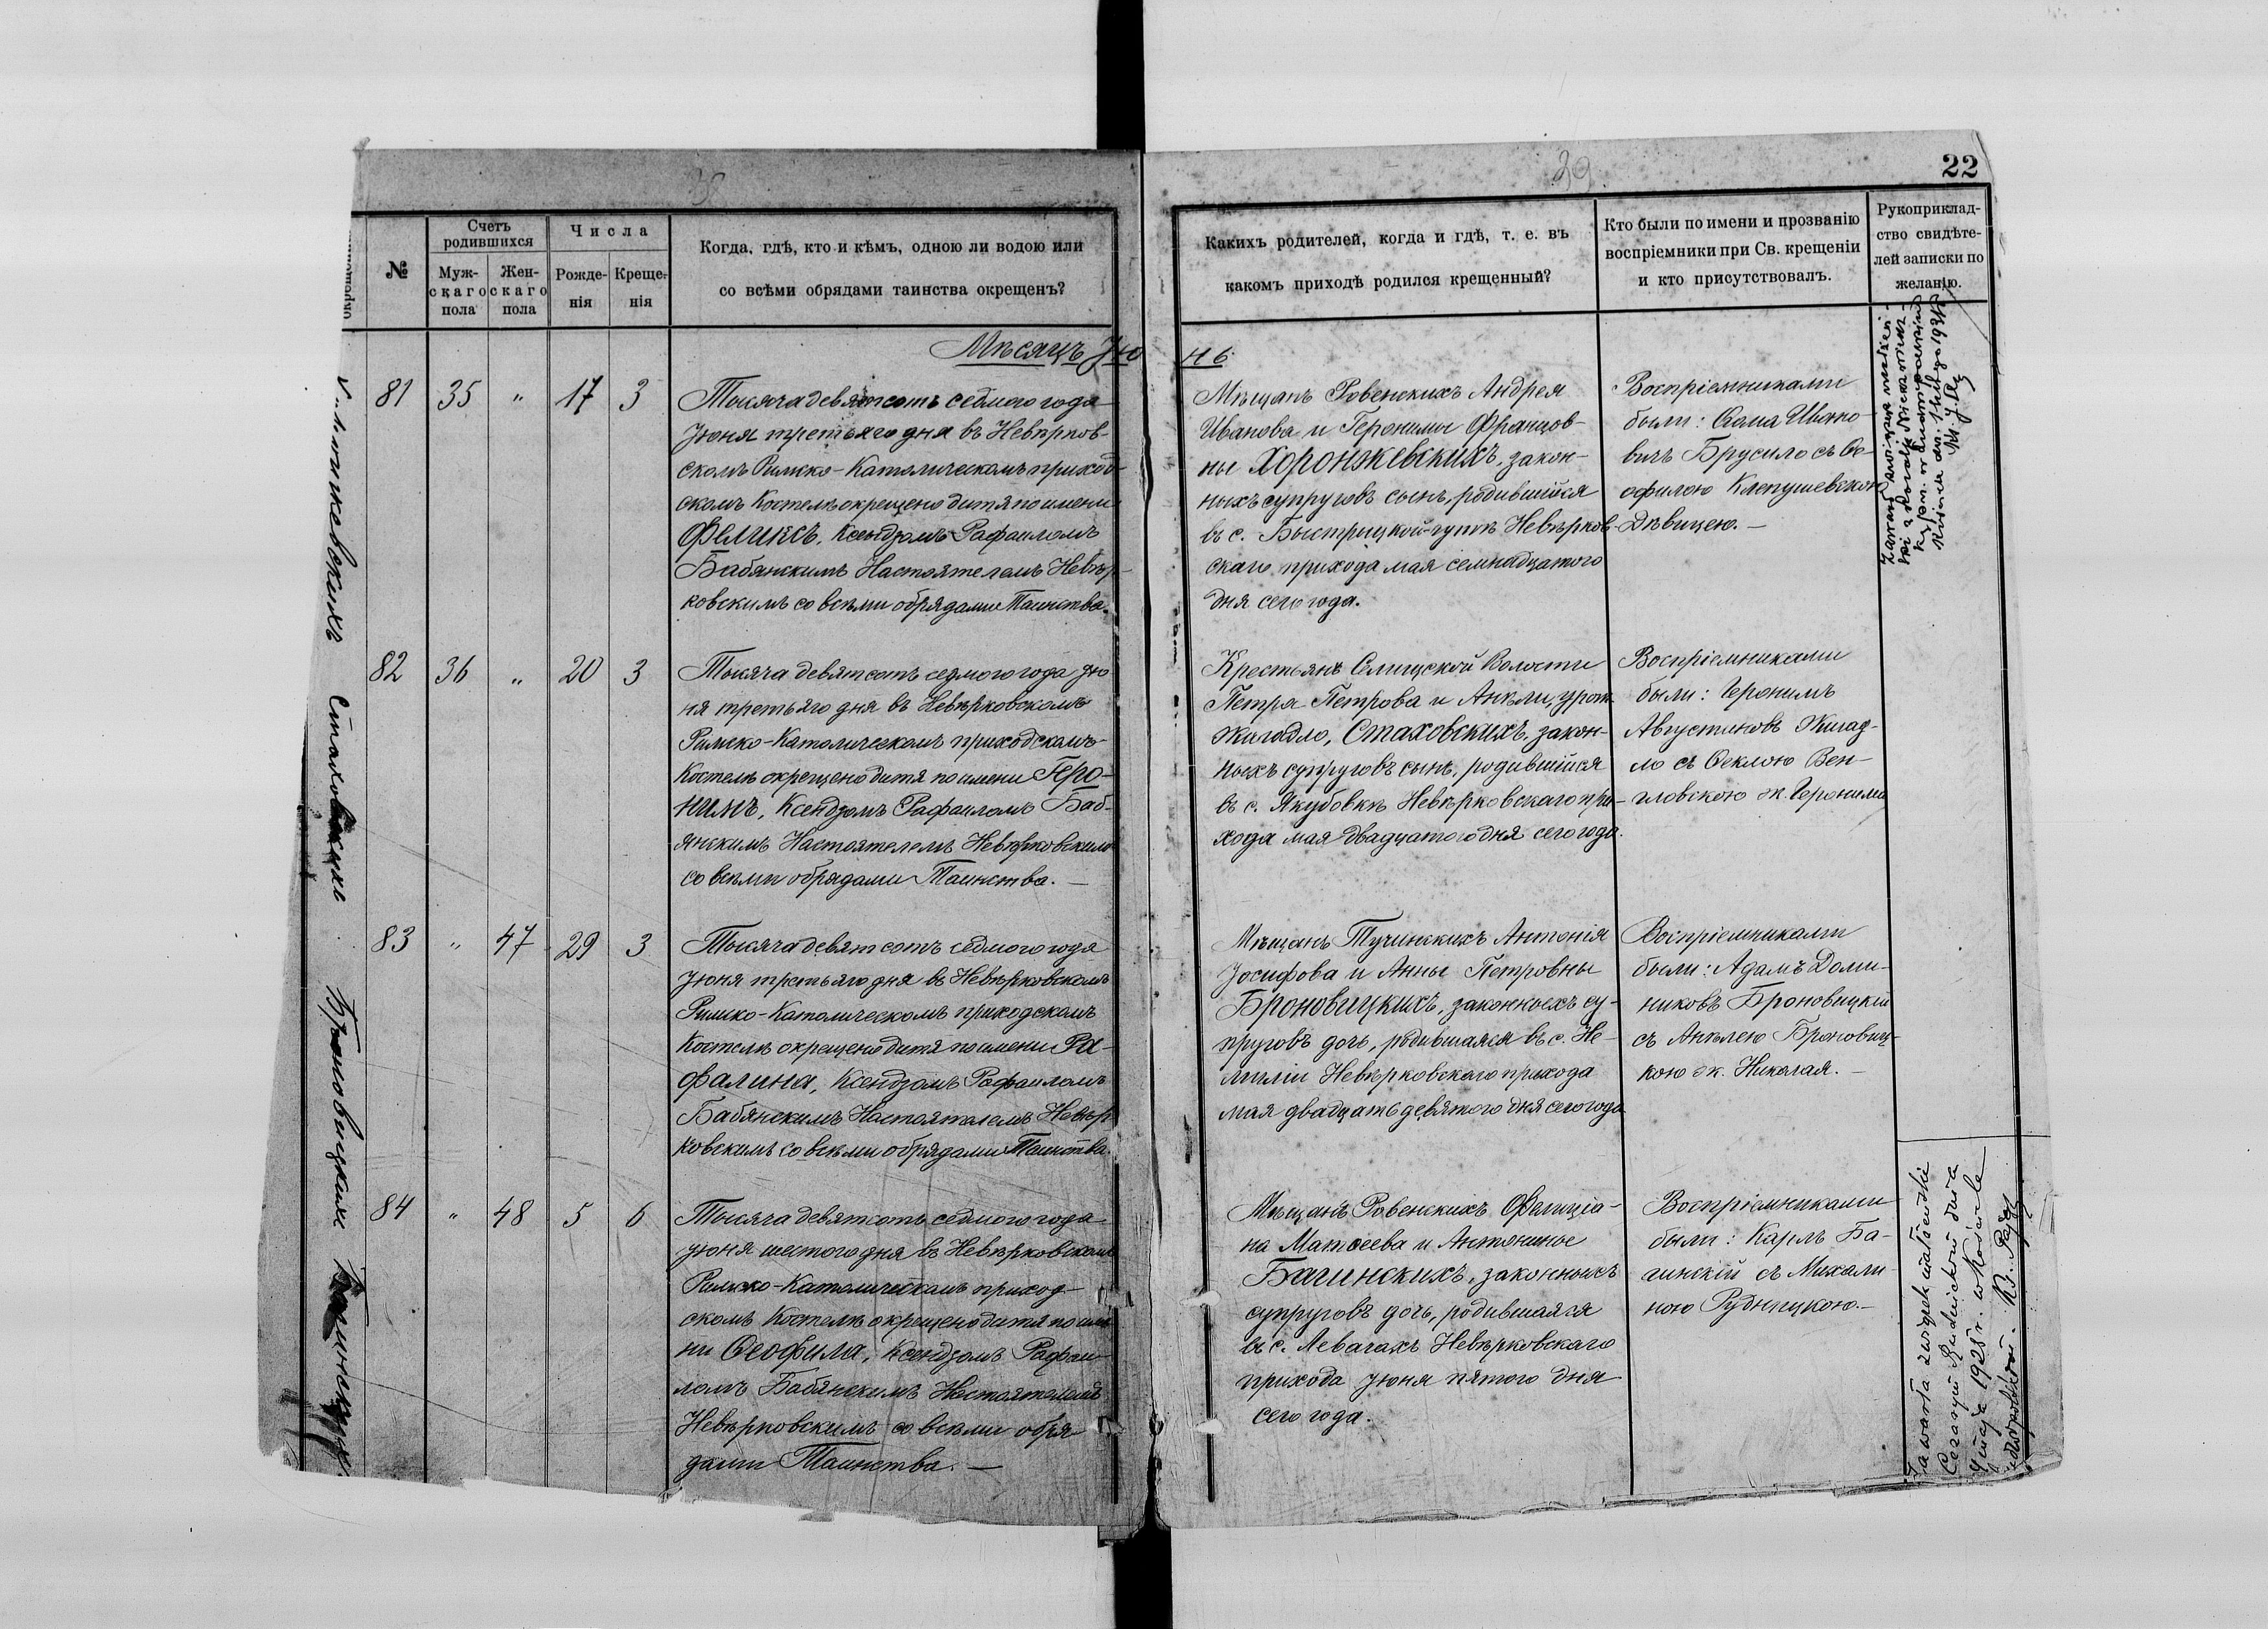 38
39
22
№
Счетъ
родившихся
Муж-
скаго
пола
Жен-
скаго
пола
Числа
Рожде-
нія
Креще-
нія
Когда, гдѣ, кто и кѣмъ, одною ли водою или
со всѣми обрядами таинства окрещенъ?
Какихъ родителей, когда и гдѣ, т. е. въ
какомъ приходѣ родился крещенный?
Кто были по имени и прозванію
воспріемники при Св. крещеніи
и кто присутствовалъ.
Рукоприклад-
ство свидѣте-
лей записки по
желанію.
Мѣсяцъ Ію
нь
81 35 " 17 3
Тысяча девятсотъ седмого года
Іюня третьяго дня въ Невѣрков-
скомъ Римско-Католическомъ приход-
скомъ Костелѣ окрещено дитя по имени
Феликсъ, Ксендзомъ Рафаиломъ
Бабянскимъ Настоятелемъ Невѣр-
ковскимъ со всѣми обрядами Таинства.
Мѣщанъ Ровенскихъ Андрея
Иванова и Геронимы Францов-
ны Хоронжевскихъ, закон-
ныхъ супруговъ сынъ, родившійся
въ с. Быстрицкой-гутѣ Невѣрков-
скаго прихода мая семнадцатого
дня сего года.
Воспріемниками
были: Ивано-
вичъ Брусило съ Ѳе-
офилою Клепушевскою
Дѣвицею. —
82 36 " 20 3
Тысяча девятсотъ седмого года Ію
ня третьяго дня въ Невѣрковскомъ
Римско-Католическомъ приходскомъ
Костелѣ окрещено дитя по имени Геро-
нимъ, Ксендзомъ Рафаиломъ Баб-
янскимъ Настоятелемъ Невѣрковскимъ
со всѣми обрядами Таинства. —
Крестьянъ Селищской Волости
Петра Петрова и Анѣли, урож.
Жигадло, Стаховскихъ, закон-
ныхъ супруговъ сынъ, родившійся
въ с. Якубовкѣ Невѣрковскаго при-
хода мая двадцатого дня сего года.
Воспріемниками
были: Геронимъ
Августиновъ Жигад-
ло съ Ѳеклою Вен-
гловскою ж. Геронима
83 " 47 29 3
Тысяча девятсотъ седмого года
Іюня третьяго дня въ Невѣрковскомъ
Римско-Католическомъ приходскомъ
Костелѣ окрещено дитя по имени Ра-
фалина, Ксендзомъ Рафаиломъ
Бабянскимъ Настоятелемъ Невѣр
ковскимъ со всѣми обрядами Таинства.
Мѣщанъ Тучинскихъ Антонія
Іосифова и Анны Петровны
Броновицкихъ, законныхъ су-
пруговъ дочь, родившаяся въ с. Не-
миліи Невѣрковскаго прихода
мая двадцать девятого дня сего года
Воспріемниками
были: Адамъ Доми-
никовъ Броновицкій
съ Анѣлею Броновиц-
кою ж. Николая. —
84 " 48 5 6
Тысяча девятсотъ седмого года
Іюня шестого дня въ Невѣрковскомъ
Римско-Католическомъ приход-
скомъ Костелѣ окрещено дитя по име
ни Ѳеофила, Ксендзомъ Рафаи-
ломъ Бабянскимъ Настоятелемъ
Невѣрковскимъ со всѣми обря
дами Таинства. —
Мѣщанъ Ровенскихъ Фелиціа-
на Матѳеева и Антонины
Багинскихъ, законныхъ
супруговъ дочь, родившаяся
въ с. Левачахъ Невѣрковскаго
прихода Іюня пятого дня
сего года.
Воспріемниками
были: Карлъ Ба-
гинскій съ Михали-
ною Рудницкою. —
Стаховскихъ
Броновицкихъ
Багинскихъ
Zawarła związek małżeński
Cezarym Rudnickim dnia
maja 1928 r. w Kościele